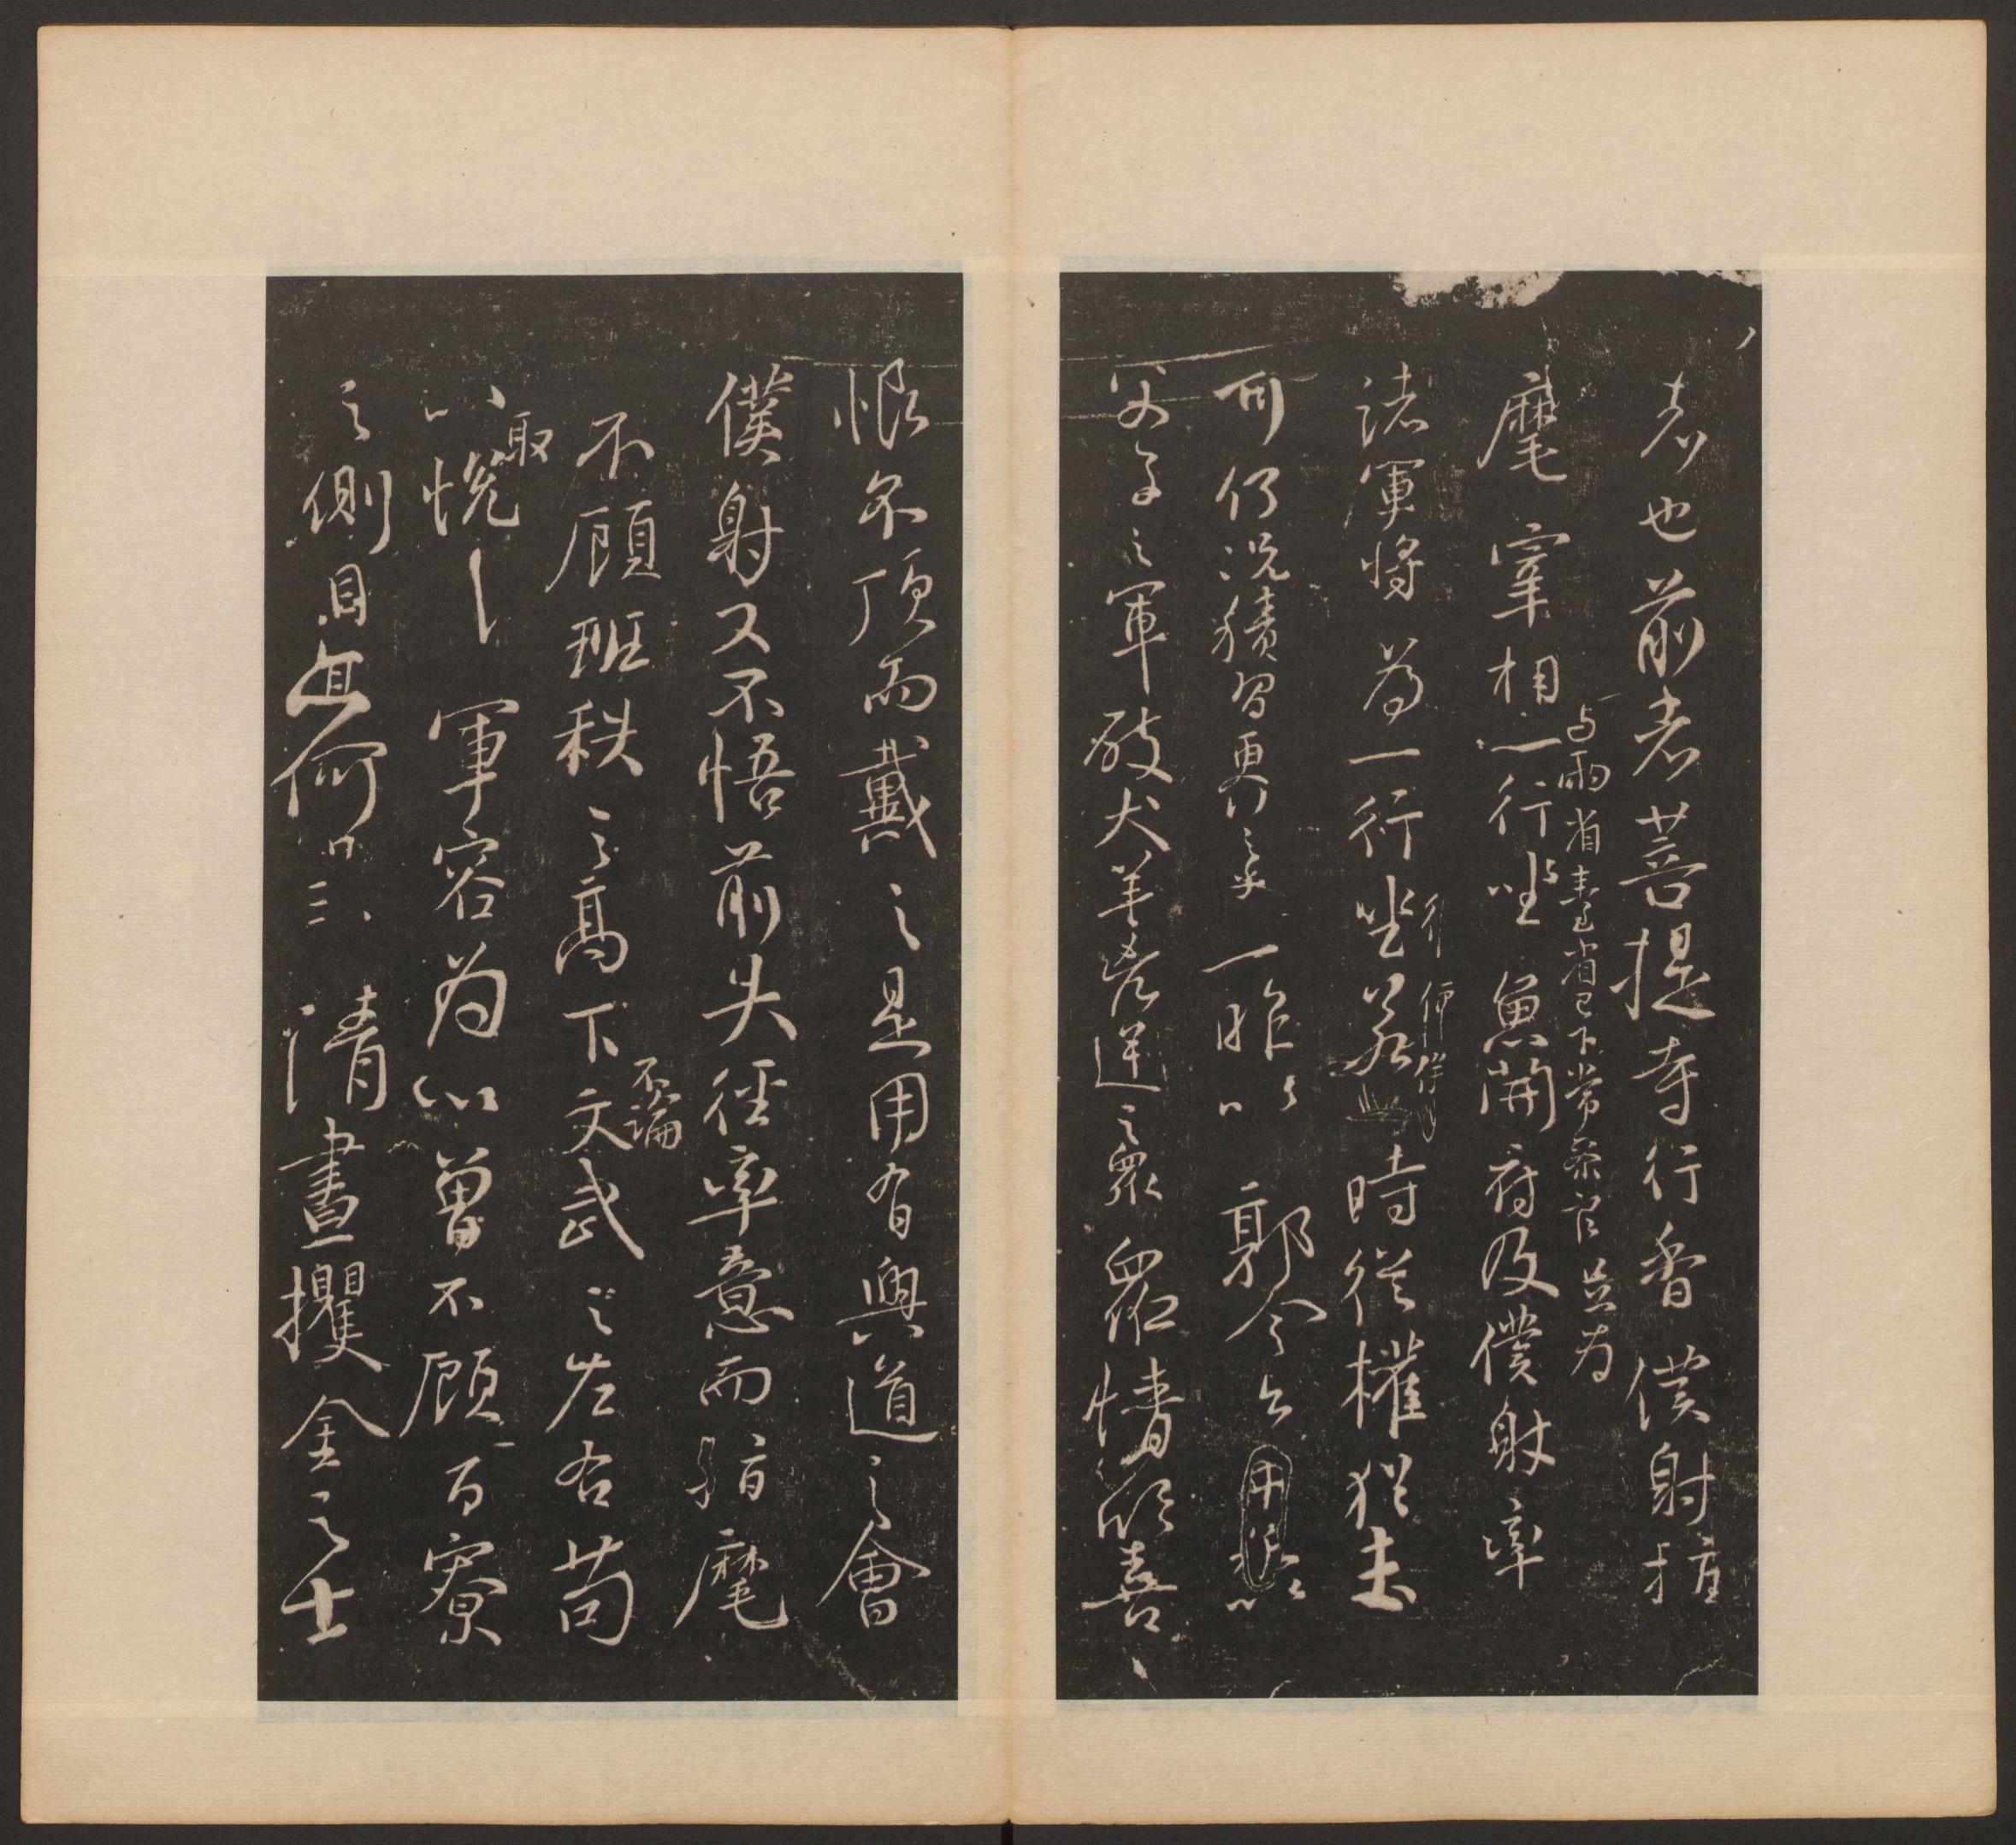 者也前者菩提寺行香僕射指
与兩省臺省已下常參官並為
麾宰相一行坐魚開府及僕射率
諸軍將為一行坐若時從權猶未
可何況積習更行之乎一昨以郭令公以
父子之軍破犬羊凶逆之眾眾情欣喜
恨不頂而戴之是用有興道之會
僕射又不悟前失徑率意而指麾
不論
不顧班秩之高下文武之左右苟
取
以悅軍容為心曾不顧百寮
之側目亦何異清晝攫金之士